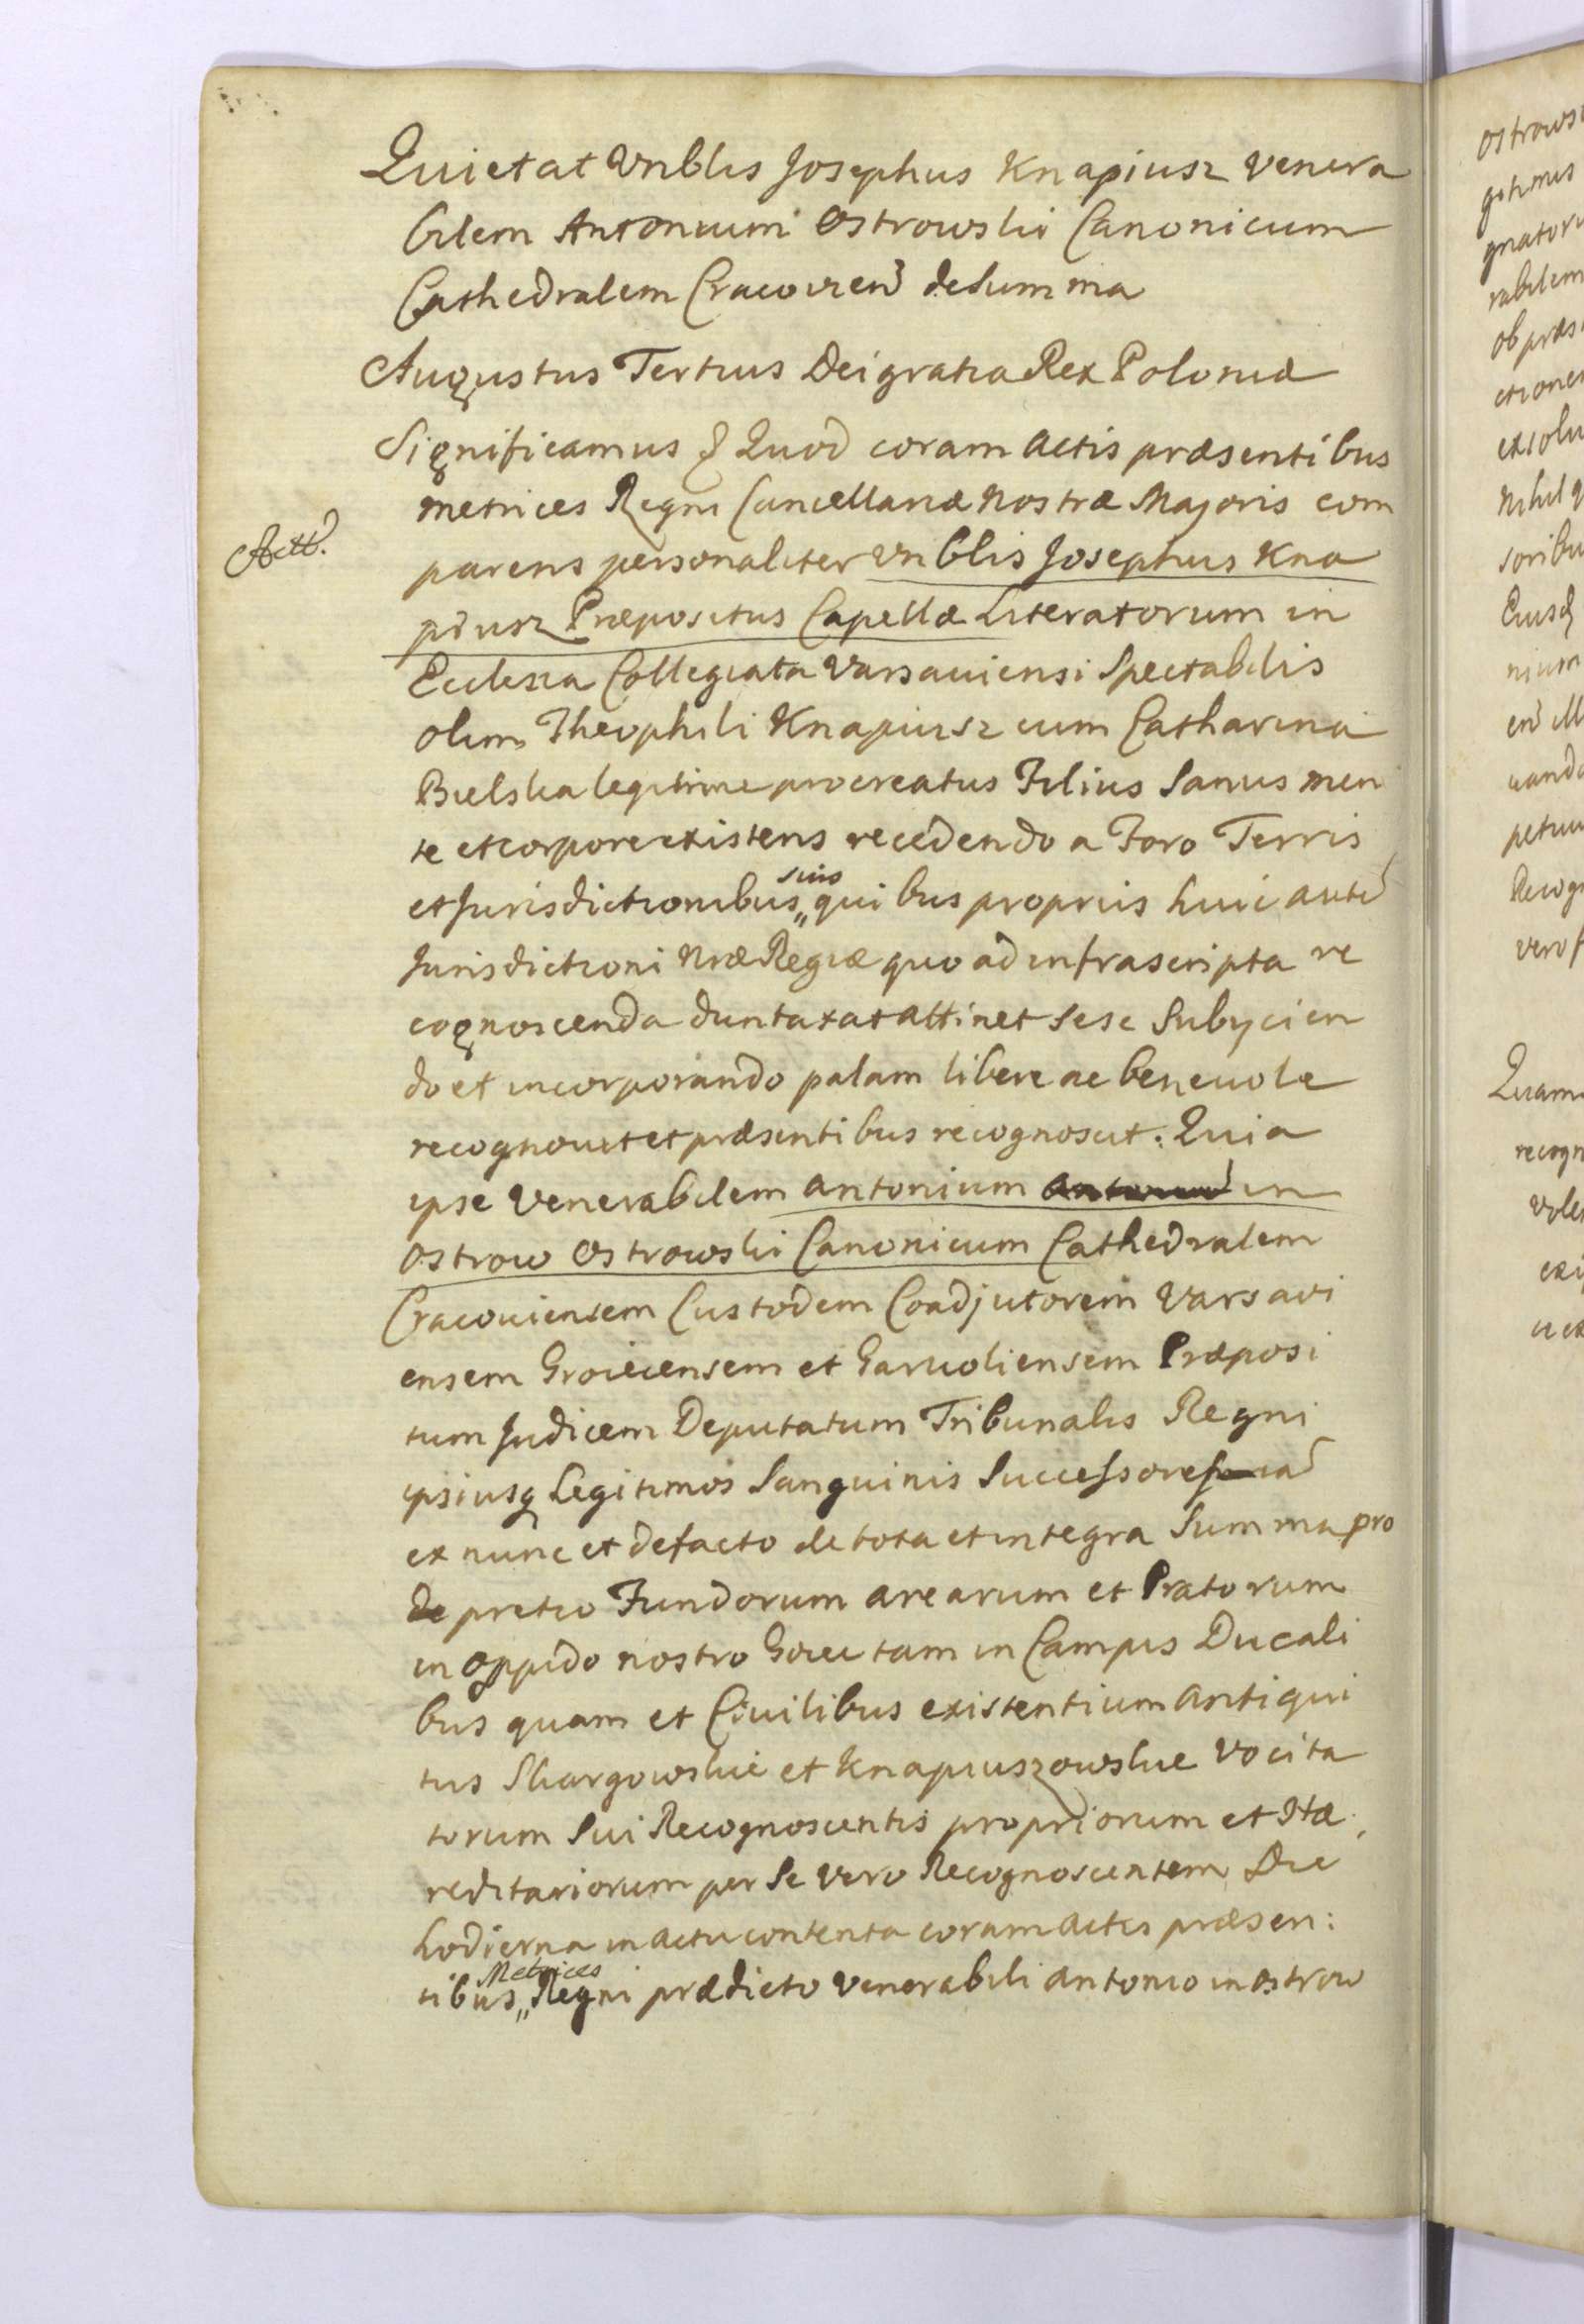 Quietat Vnblis Josephus Knapiusz Venera
bilem Antonium Ostrowski Canonicum
Cathedralem Cracovien de Summa
Augustus Tertius Dei gratia Rex Poloniæ
Significamus & Quod coram Actis præsentibus
metrices Regni Cancellariæ Nostræ Majoris com
parens personaliter Vnblis Josephus Kna
piusz Præpositus Capellæ Literatorum in
Ecclesia Collegiata Varsauiensi Spectabilis
olim Theophili Knapiusz cum Catharina
Bielska legitime procreatus Filius Sanus men
te et corpore existens recedendo a Foro Terris
et Jurisdictionibus suis quibus propriis huic aute
Jurisdictioni Nræ Regiæ quo ad infrascripta re
cognoscenda duntaxat attinet sese Subycien
do et incorporando palam libere ac beneuole
recognouit et præsentibus recognoscit: Quia
ipse Venerabilem Antonium in
Ostrow Ostrowski Canonicum Cathedralem
Cracouiensem Custodem Coadjutorem Varsavi
ensem Groiecensem et Garuoliensem Præposi
tum Judicem Deputatum Tribunalis Regni
ipsiusq Legitimos Sanguinis Successores
ex nunc et de facto de tota et integra Summa pro
de pretio Fundorum arearum et Pratorum
in oppido nostro tam in Campis Ducali
bus quam et Ciuilibus existentium antiqui
tus Skargowskie et Knapiuszowskie Vocita
torum Sui Recognoscentis propriorum et Hæ
reditariorum per Se Vero Recognoscentem Die
hodierna in actu contenta coram Actis præsen:
tibus Metrices Regni prædicto Venerabili Antonio in Ostrow
Ostrows
gitimos
gnatoru
rabilem
ob præs
ctionem
exsolu
Nihil q
soribu
Eiusd
nium
uando
petuu
Recog
vero
Quam
recogn